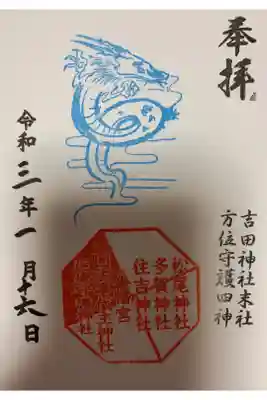 奉拝
吉田神社末社
方位守護四神
松尾神社
多賀神社
住吉神社
宮
神社
令和三年一月十六日